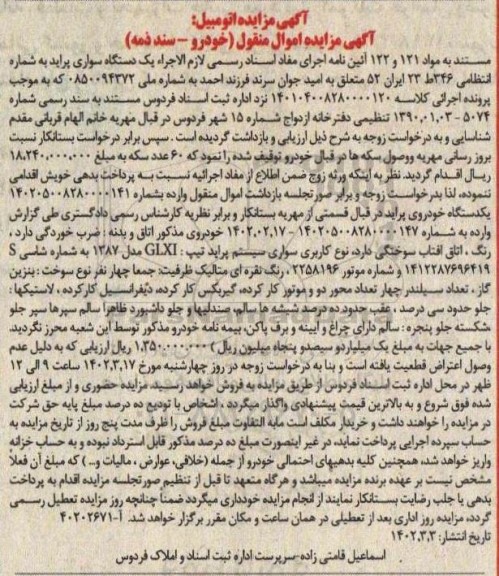 آگهی مزایده اتومبیل:
آگهی مزایده اموال منقول (خودرو – سند ذمه)
مستند به مواد ۱۲۱ و ۱۲۲ آئین نامه اجرای مفاد اسناد رسمی لازم الاجراء یک دستگاه سواری پراید به شماره
انتظامی ۳۴۶ط ۲۳ ایران ۵۲ متعلق به امید جوان سرند فرزند احمد به شماره ملی ۰۸۵۰۰۹۴۳۷۲ که به موجب
پرونده اجرائی کلاسه ۱۴۰۱۰۴۰۰۸۲۸۰۰۰۰۱۲۰ نزد اداره ثبت اسناد فردوس مستند به سند رسمی شماره
۵۰۷۴ - ۱۳۹۰,۰۱,۰۳ تنظیمی دفترخانه ازدواج شماره ۱۵ شهر فردوس در قبال مهریه خانم الهام قربانی مقدم
شناسایی و به درخواست زوجه به شرح ذیل ارزیابی و بازداشت گردیده است . سپس برابر درخواست بستانکار نسبت
بروز رسانی مهریه ووصول سکه ها در قبال خودرو توقیف شده را نمود که ۶۰ عدد سکه به مبلغ ۱۸,۲۴۰,۰۰۰,۰۰۰
ریال اقدام گردید. نظر به اینکه ورثه زوج ضمن اطلاع از مفاد اجرائیه نسبت به پرداخت بدهی خویش اقدامی
ننموده، لذا بدرخواست زوجه و برابر صورتجلسه بازداشت اموال منقول وارده بشماره ۱۴۰۲۰۵۰۰۸۲۸۰۰۰۰۱۴۱
یکدستگاه خودروی پراید در قبال قسمتی از مهریه بستانکار و برابر نظریه کارشناس رسمی دادگستری طی گزارش
وارده به شماره ۱۴۰۲۰۵۰۰۸۲۸۰۰۰۰۱۴۷ - ۱۴۰۲,۰۲,۱۷ خودروی مذکور اتاق و بدنه : ضرب خوردگی دارد ،
رنگ ، اتاق آفتاب سوختگی دارد، نوع کاربری سواری سیستم پراید تیپ : GLXI مدل ۱۳۸۷ به شماره شاسی S
۱۴۱۲۲۸۷۶۹۶۴۱۹ و شماره موتور ۲۲۵۸۱۹۶ ، رنگ نقره ای متالیک ظرفیت: جمعا چهار نفر نوع سوخت : بنزین
گاز ، تعداد سیلندر چهار تعداد محور دو و موتور کار کرده، گیربکس کار کرده، دیفرانسیل کارکرده ، لاستیکها :
جلو حدود سی درصد ، عقب حدود ده درصد شیشه ها سالم صندلیها و جلو داشبورد ظاهرا سالم سپرها سپر جلو
شکسته جلو پنجره : سالم دارای چراغ و آیینه و برف پاکن، بیمه نامه خودرو مذکور توسط این شعبه محرز نگردید.
با جمیع جهات به مبلغ یک میلیاردو سیصدو پنجاه میلیون ریال ) ۱,۳۵۰,۰۰۰,۰۰۰ ریال ارزیابی که به دلیل عدم
وصول اعتراض قطعیت یافته است و بنا به درخواست زوجه در روز چهارشنبه مورخ ۱۴۰۲,۳,۱۷ ساعت ۹ الی ۱۲
ظهر در محل اداره ثبت اسناد فردوس از طریق مزایده به فروش خواهد رسید مزایده حضوری و از مبلغ ارزیابی
شده فوق شروع و به بالاترین قیمت پیشنهادی واگذار میگردد ، اشخاص با تودیع ده درصد مبلغ پایه حق شرکت
در مزایده را خواهند داشت و خریدار مکلف است مابه التفاوت مبلغ فروش را ظرف مدت پنج روز از تاریخ مزایده به
حساب سپرده اجرایی پرداخت نماید، در غیر اینصورت مبلغ ده درصد مذکور قابل استرداد نبوده و به حساب خزانه
واریز خواهد شد، همچنین کلیه بدهیهای احتمالی خودرو از جمله (خلافی، عوارض ، مالیات و... ) که مبلغ آن فعلا
مشخص نیست بر عهده برنده مزایده میباشد و هرگاه متعهد تا قبل از تنظیم صورتجلسه مزایده اقدام به پرداخت
بدهی یا جلب رضایت بستانکار نمایند از انجام مزایده خودداری میگردد ضمناً چنانچه روز مزایده تعطیل رسمی
گردد، مزایده روز اداری بعد از تعطیلی در همان ساعت و مکان مقرر برگزار خواهد شد. آ-۴۰۲۰۲۶۷۱
تاریخ انتشار: ۱۴۰۲,۳,۳
اسماعیل قامتی زاده-سرپرست اداره ثبت اسناد و املاک فردوس